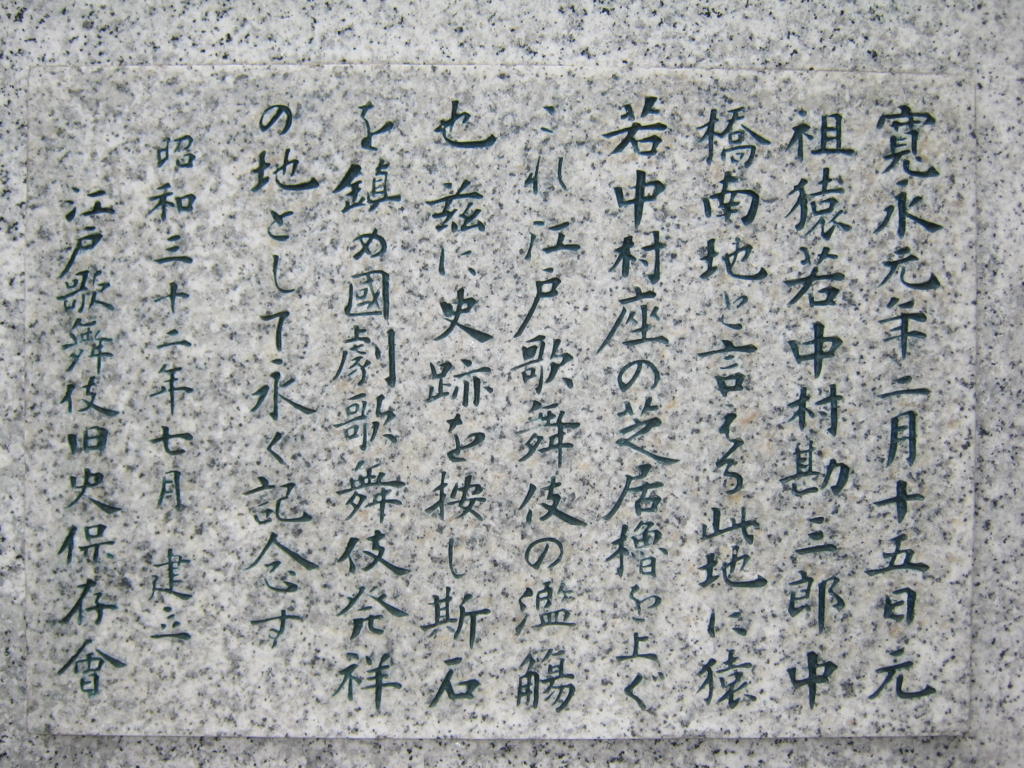 寛永元年二月十五日元
祖猿若中村勘三郎中
橋南地と言へる此地に猿
若中村座の芝居櫓を上ぐ
これ江戸歌舞伎の濫觴
也茲に史跡を按し斯石
を鎮め國劇歌舞伎発祥
の地として永く記念す
昭和三十二年七月 建立
江戸歌舞伎旧史保存會